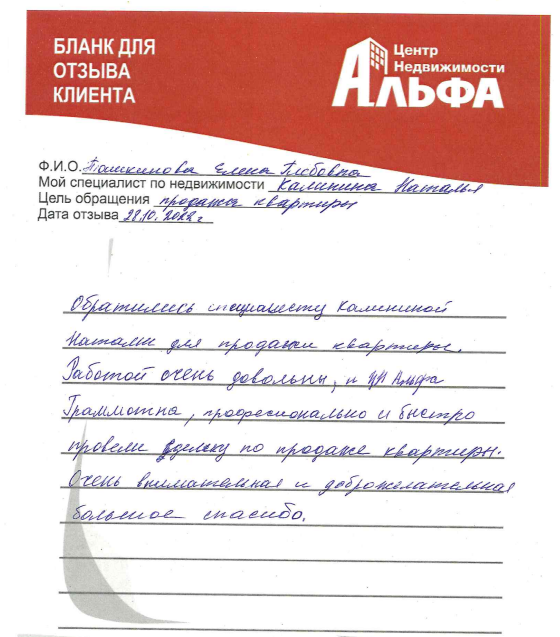 БЛАНК ДЛЯ
ОТЗЫВА
КЛИЕНТА
Центр
Недвижимости
АЛЬФА
Ф.И.О. Елена Глебовна
Мой специалист по недвижимости Калинина Наталья
Цель обращения продажа квартиры
Дата отзыва 28.10.2022 г
Обратились специалисту Калининой
Наталье для продажи квартиры.
Работой очень довольны, и ЦН Альфа
Граммотна, професионально и быстро
провели сделку по продаже квартиры.
Очень внимательная и доброжелательная
большое спасибо.